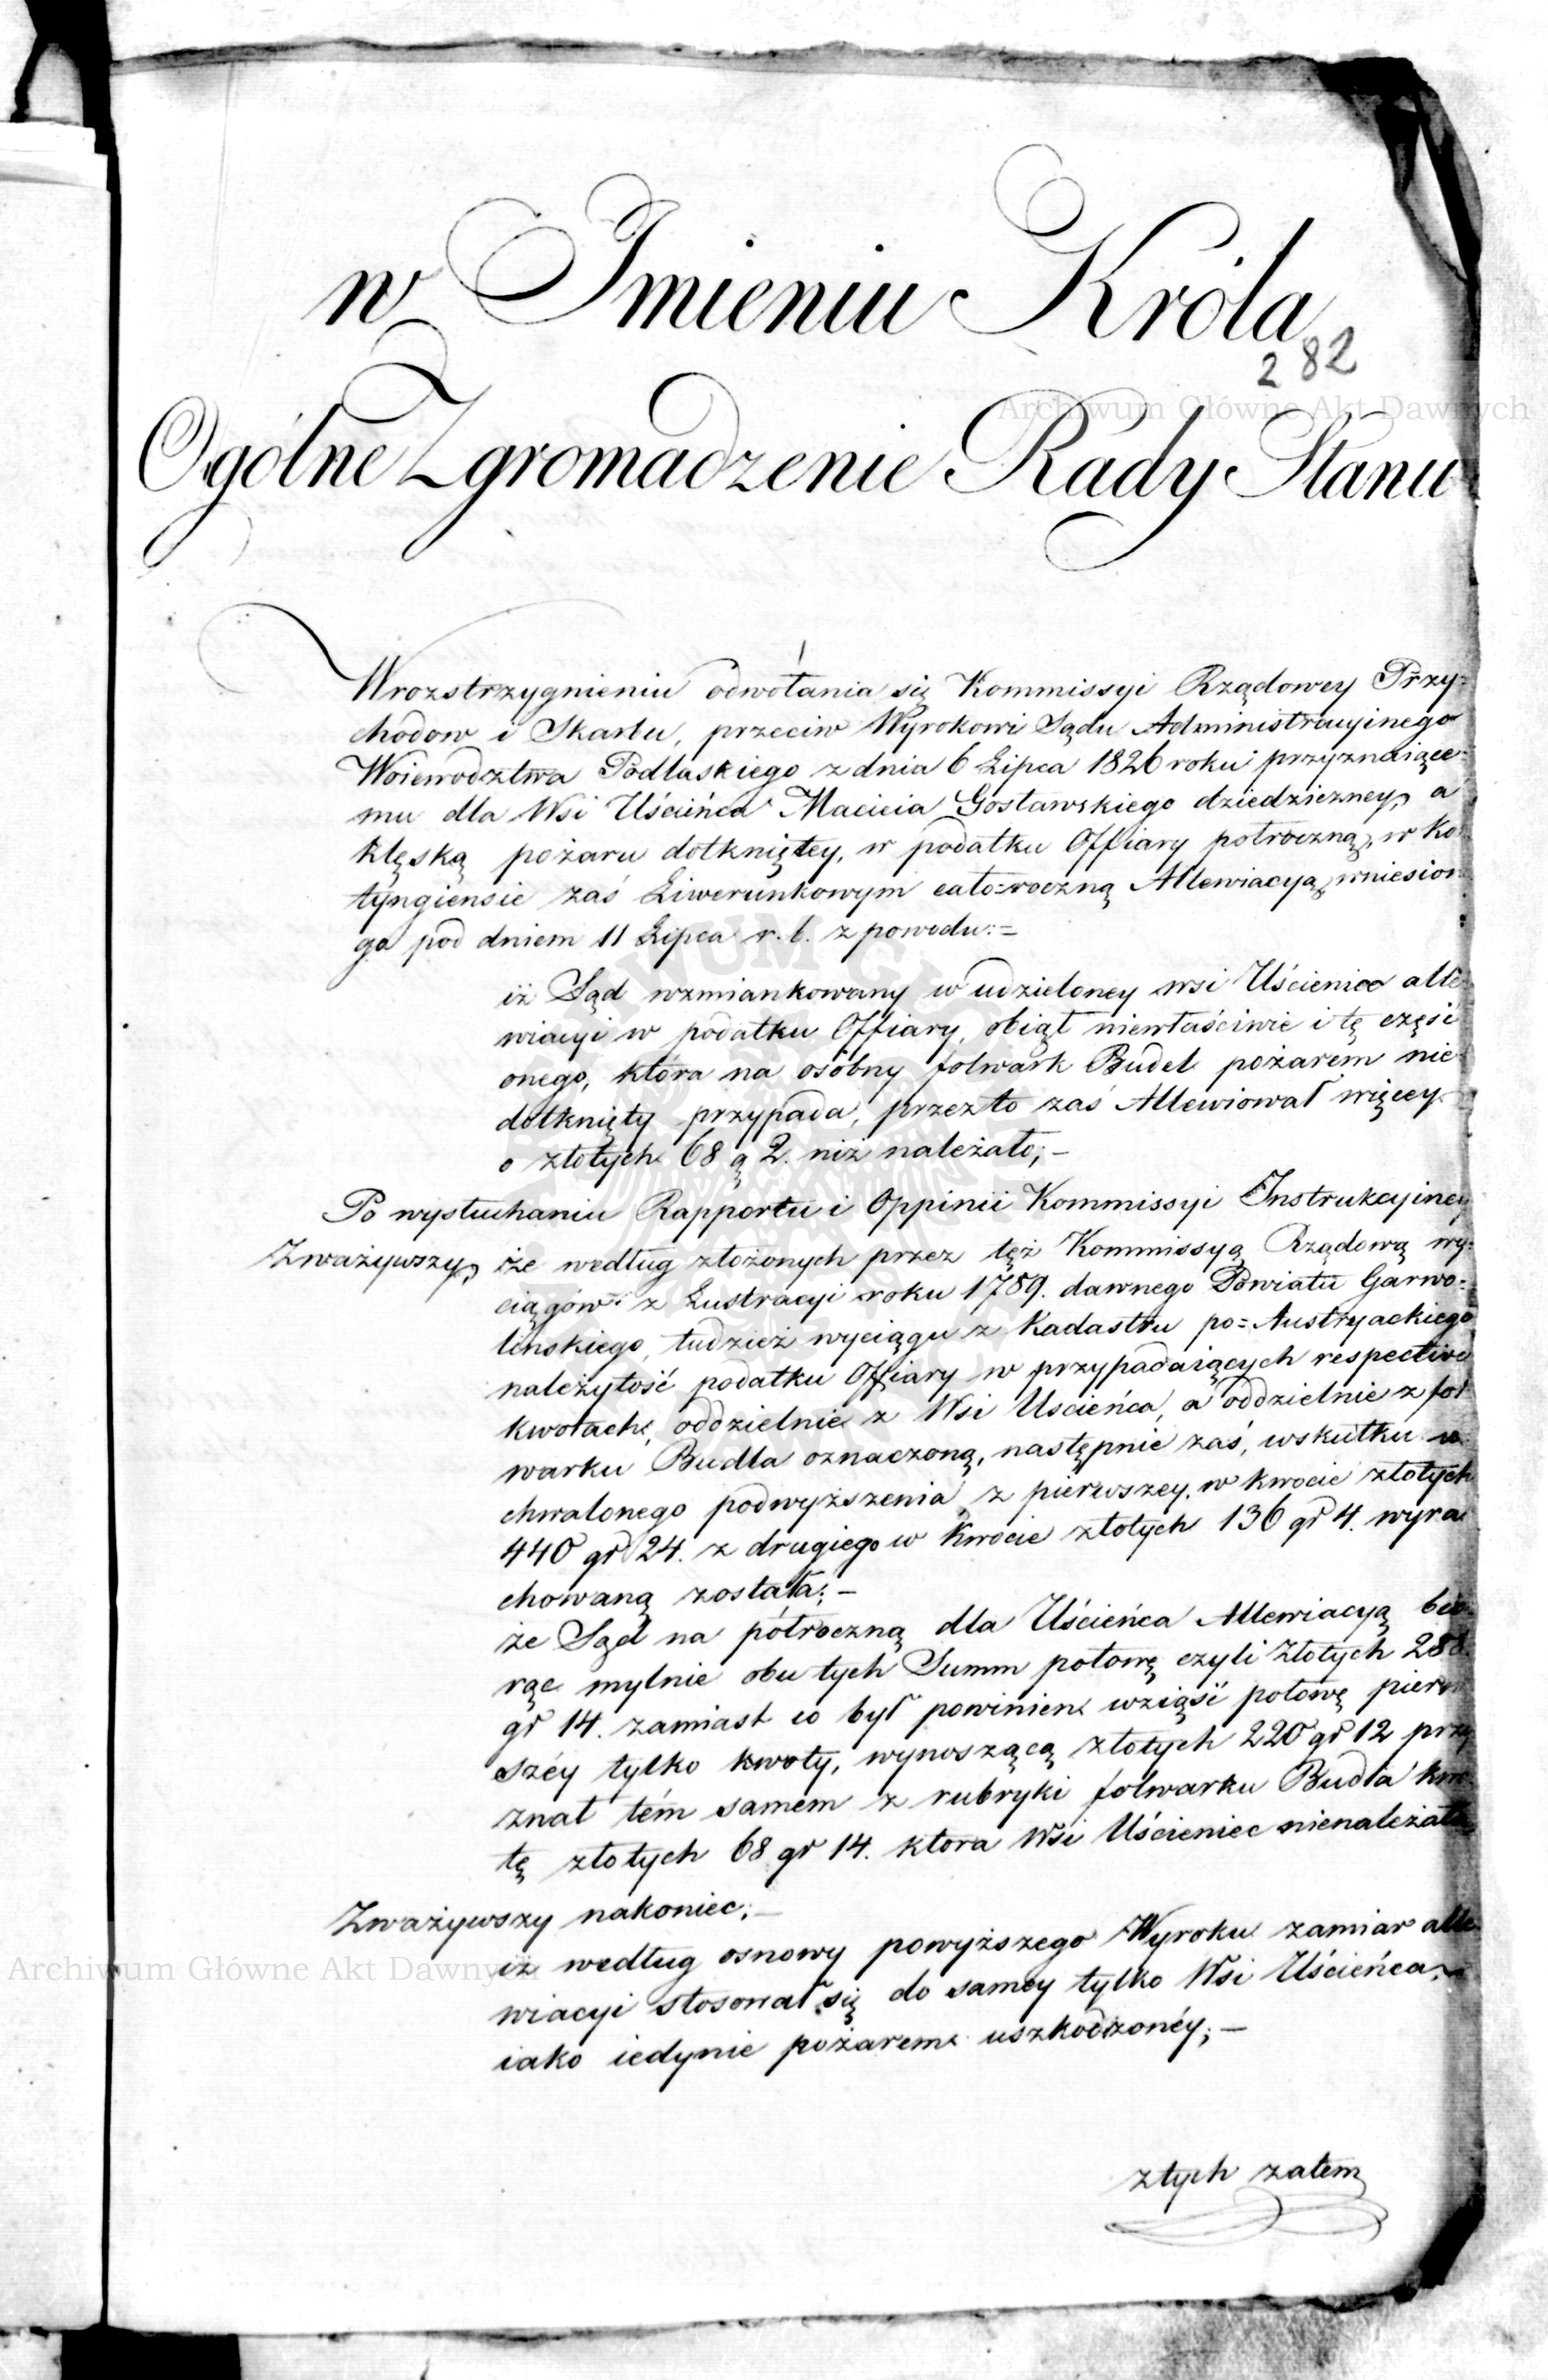 w Imieniu Króla
282
Ogólne Zgromadzenie Rady Stanu
W rozstrzygnieniu odwołania się Kommissyi Rządowey Przy=
chodow i Skarbu, przeciw Wyrokowi Sądu Administracyinego
Woiewodztwa Podlaskiego z dnia 6 Lipca 1826 roku przyznaiące=
mu dla Wsi Uścieńca Macieia Gosławskiego dziedziczney, a
klęską pożaru dotkniętey, w podatku Offiary potroczną, w Ko
tyngiensie zaś Liwerunkowym cało=roczną Allewiacyą, wniesion
go pod dniem 11 Lipca r. b. z powodu:=
iż Sąd wzmiankowany w udzieloney wsi Uścieniec alle
wiacyi w podatku Offiary, obiął niewłaściwie i tę część
onego, która na osobny folwark Budel pożarem nie
dotknięty przypada, przezto zaś Allewiował więcey
o złotych 68 g 2. niż należało; –
Po wysłuchaniu Rapportu i Oppinii Kommissyi Instrukcyiney
Zważywszy, że według złożonych przez tęż Kommissyą Rządową wy=
ciągów z Lustracyi roku 1789. dawnego Powiatu Garwo=
linskiego, tudzież wyciągu z Kadastru po=Austryackiego
należytość podatku Offiary w przypadaiących respective
kwotach, oddzielnie z Wsi Uscieńca, a oddzielnie z fol
warku Budla oznaczoną, następnie zaś, wskutku u
chwalonego podwyższenia z pierwszey, w kwocie złotych
440 gr 24. z drugiego w kwocie złotych 136 gr 4. wyra
chowaną została; –
że Sąd na półroczną dla Uścieńca Allewiacyą bio=
rąc mylnie obu tych Summ połowę czyli Złotych 288.
gr 14. zamiast co był powinien wziąść połowę pierw
széy tylko kwoty, wynoszącą złotych 220 gr 12 przy
znał tém samem z rubryki folwarku Budla kwo
tę złotych 68 gr 14. która Wsi Uścieniec nienależała
Zważywszy nakoniec; –
iż według osnowy powyższego Wyroku zamiar alle
wiacyi stosował się do samey tylko Wsi Uścieńca,
iako iedynie pożarem uszkodzonéy; –
z tych zatem
Archiwum Główne Akt Dawnych
Archiwum Główne Akt Dawnych